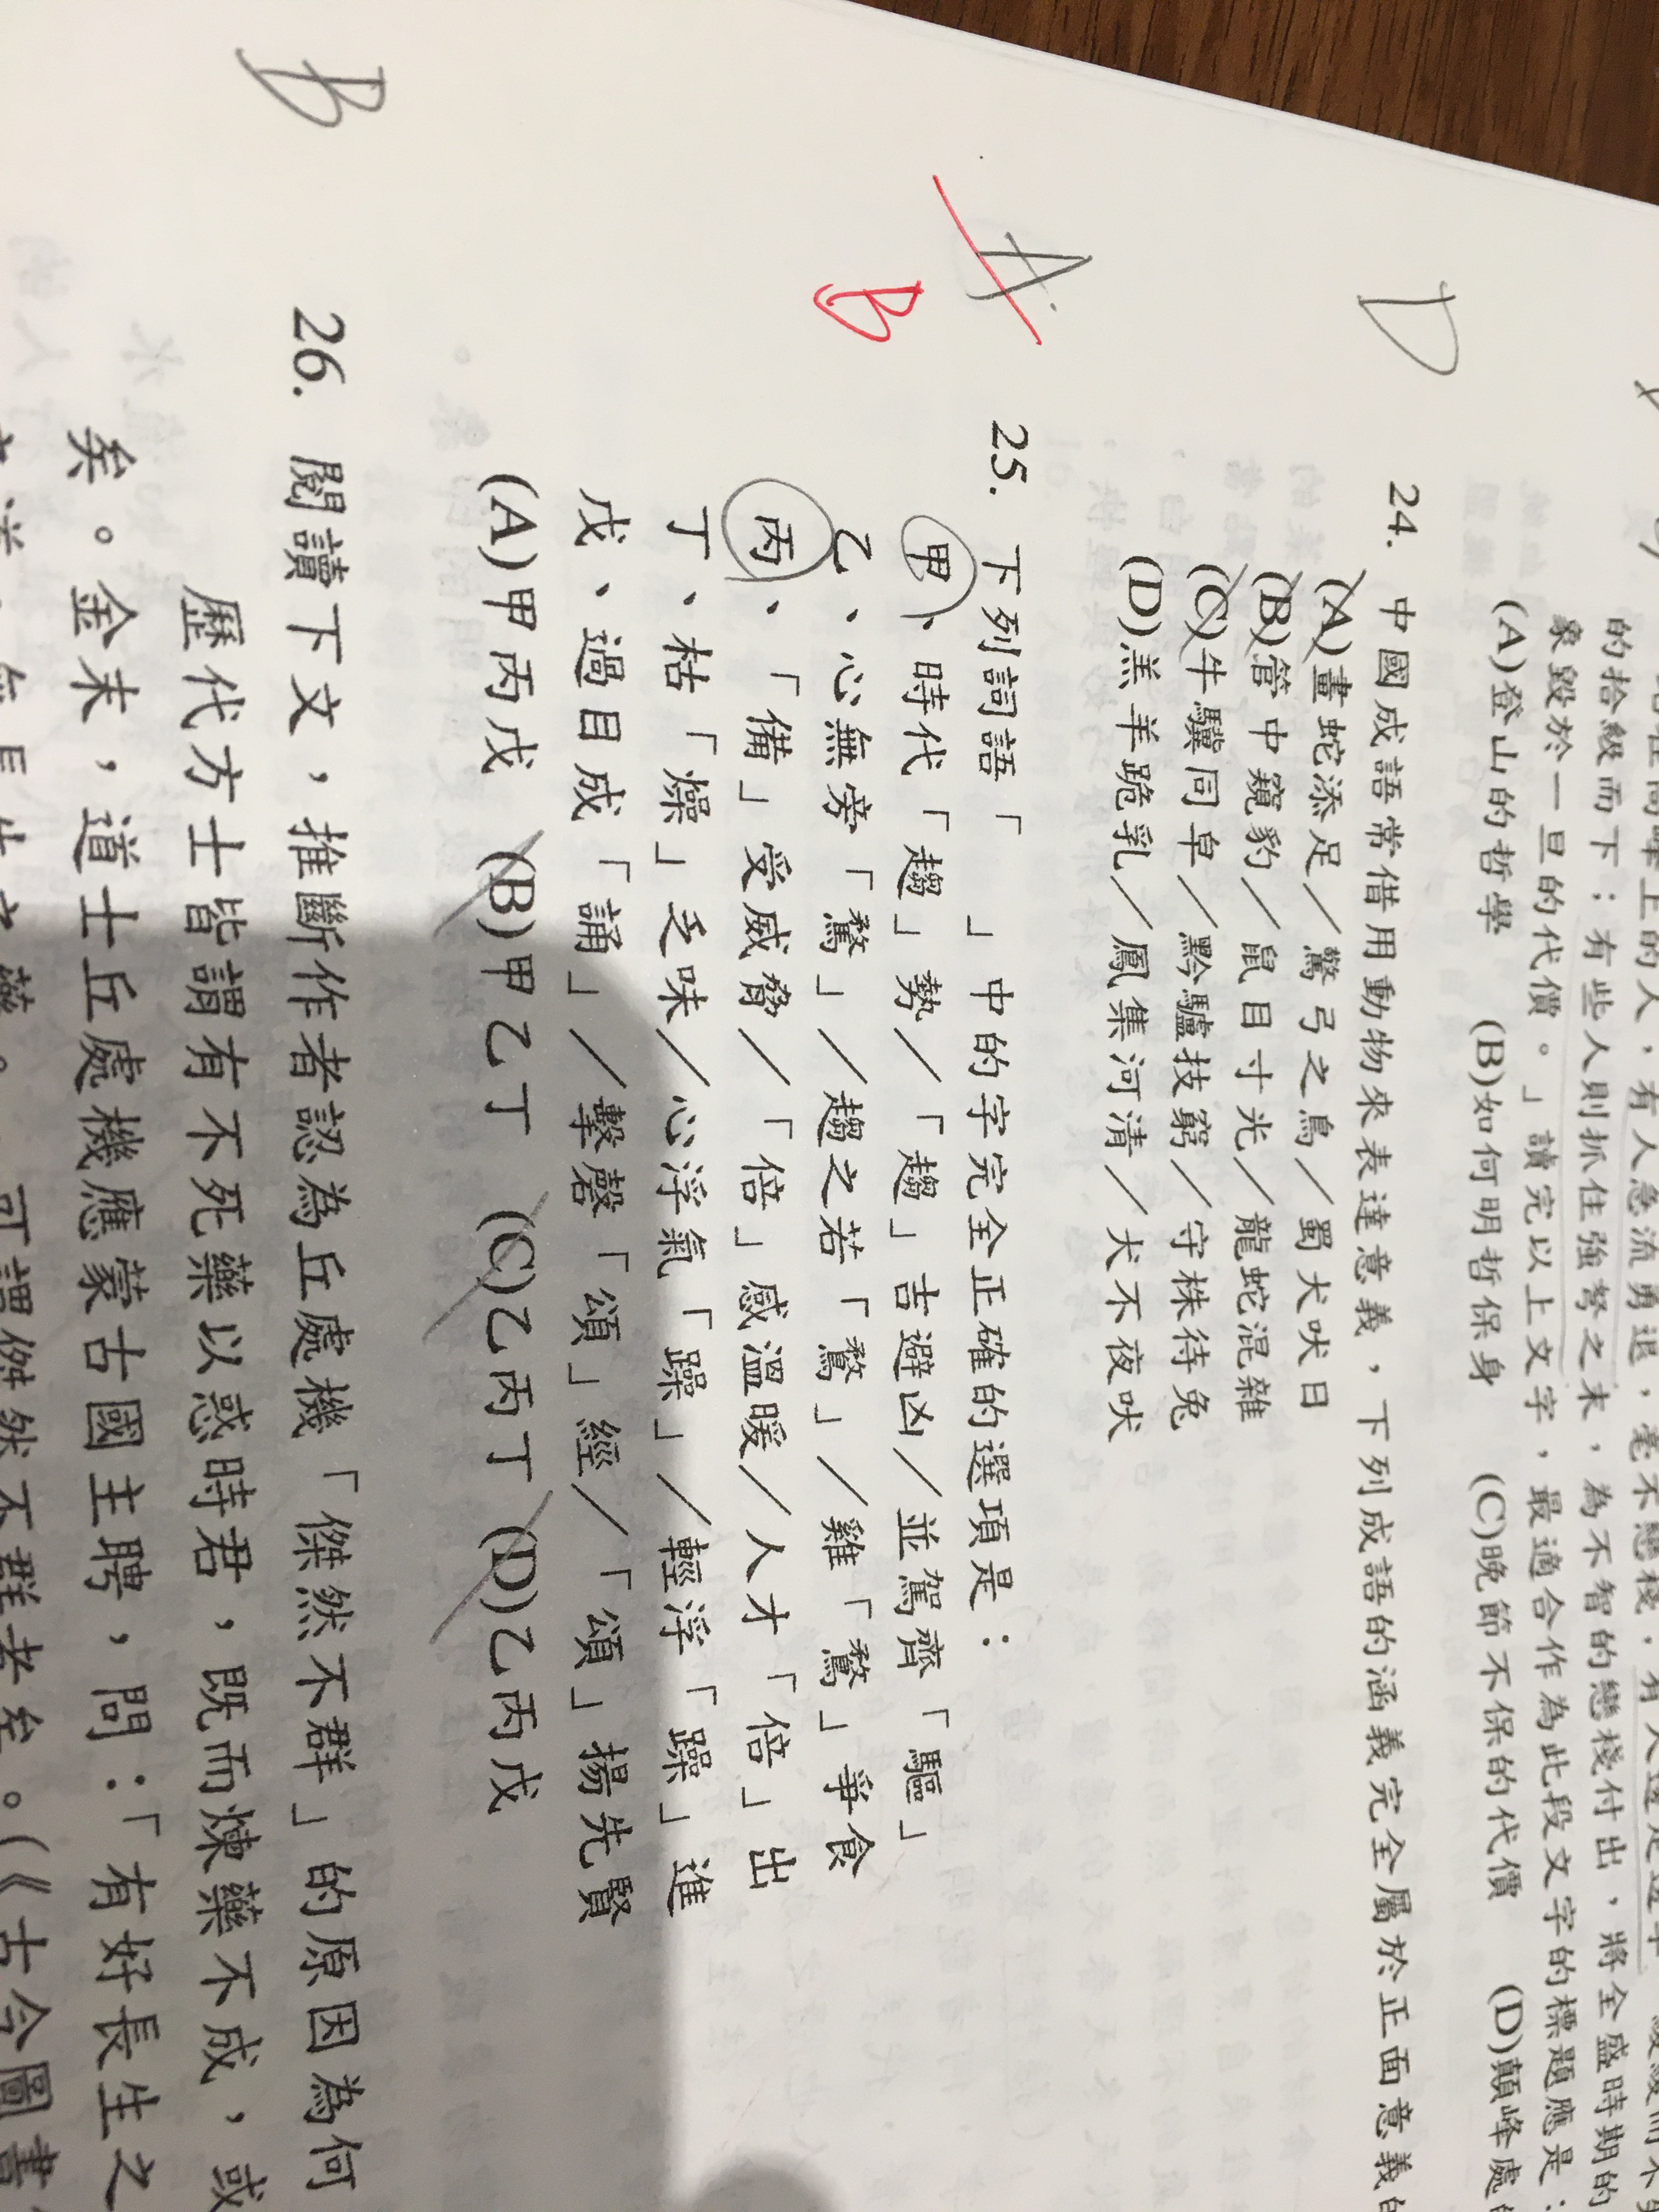 的拾級而下；有些人則抓住強弩之末，為不智的戀棧付出，將全盛時期的
象毀於一旦的代價。」讀完以上文字，最適合作為此段文字的標題應是：
(A)登山的哲學 (B)如何明哲保身 (C)晚節不保的代價 (D)顛峰處
D
24. 中國成語常借用動物來表達意義，下列成語的涵義完全屬於正面意義的
(A)畫蛇添足／驚弓之鳥／蜀犬吠日
(B)管中窺豹／鼠目寸光／龍蛇混雜
(C)牛驥同皁／黔驢技窮／守株待兔
(D)羔羊跪乳／鳳集河清／犬不夜吠
A B
25. 下列詞語「 」中的字完全正確的選項是：
甲、時代「趨」勢／「趨」吉避凶／並駕齊「驅」
乙、心無旁「鶩」／趨之若「鶩」／雞「鶩」爭食
丙、「備」受威脅／「倍」感溫暖／人才「倍」出
丁、枯「燥」乏味／心浮氣「躁」／輕浮「躁」進
戊、過目成「誦」／擊磬「頌」經／「頌」揚先賢
(A)甲丙戊 (B)甲乙丁 (C)乙丙丁 (D)乙丙戊
B
26. 閱讀下文，推斷作者認為丘處機「傑然不群」的原因為何
歷代方士皆謂有不死藥以惑時君，既而煉藥不成，或
矣。金末，道士丘處機應蒙古國主聘，問：「有好長生之
可謂傑然不群者矣。(《古今圖書